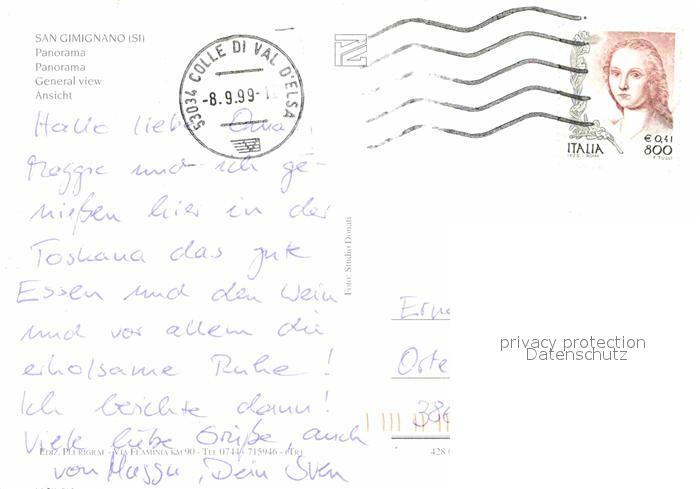 SAN GIMIGNANO (SI)
Panorama
Panorama
General view
Ansicht
53034 COLLE DI VAL D'ELSA
-8.9.99-1
€ 0,41
ITALIA 800
Hallo liebe Oma,
Maggu und ich ge-
nießen hier in der
Toskana das gute
Essen und den Wein
und vor allem die
erholsame Ruhe!
Ich berichte dann!
Viele liebe Grüße, auch
von Maggu, Dein Sven
Foto: Studio Donati
Orte
386
privacy protection
Datenschutz
EDIZ. PLURIGRAF - VIA FLAMINIA KM 90 - TEL 0744 715946 - (TR)
428